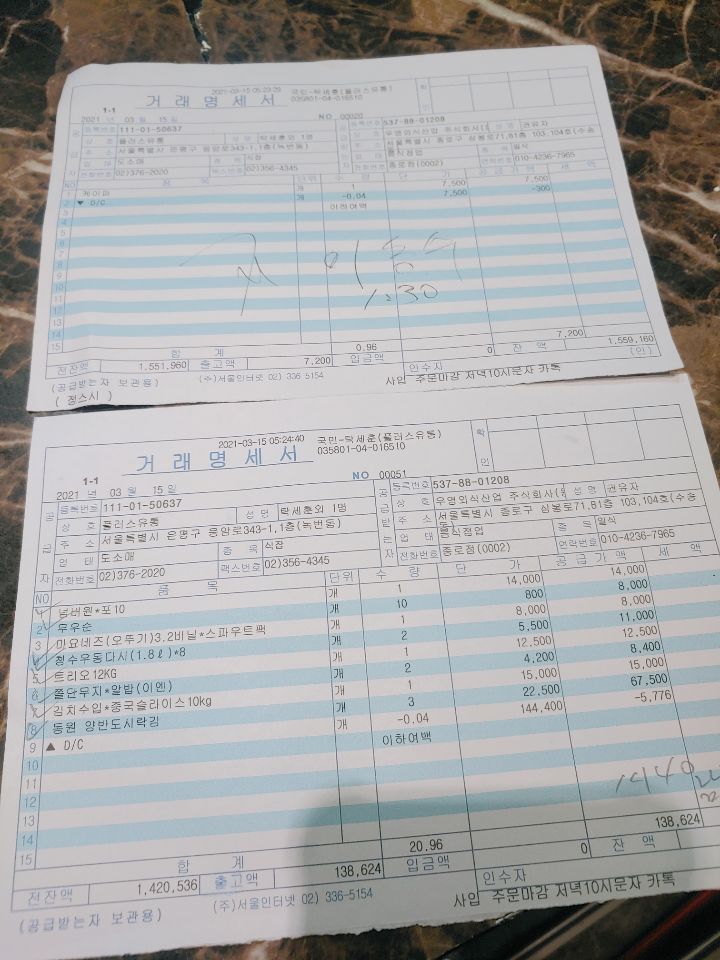 2021-03-15 05:23:29 국민-탁세훈(플러스유통)
1-1 거래명세서 035801-04-016510 확인
2021 년 03 월 15 일 NO 00020
등록번호 111-01-50637 등록번호 537-88-01208
상호 플러스유통 성명 탁세훈외 1명 상호 우영외식산업 주식회사( 성명 권유자
주소 서울특별시 은평구 응암로343-1,1층(녹번동) 주소 서울특별시 종로구 삼봉로71,B1층 103,104호(수송
업태 도소매 종목 식장 업태 음식점업 종목 일식
전화번호 02)376-2020 팩스번호 02)356-4345 전화번호 종로점(0002) 연락번호 010-4236-7965
NO 품목 단위 수량 단가 공급가액 세액
1 케이퍼 개 1 7,500 7,500
2 ▼ D/C 개 -0.04 7,500 -300
3 이하여백
4
5
6
7
8
9
10
11
12
13
14
15
1:30
합계 0.96 7,200
전잔액 1,551,960 출고액 7,200 입금액 0 잔액 1,559,160
인수자 (인)
(공급받는자 보관용) (주)서울인터넷 02) 336-5154 사입 주문마감 저녁10시문자 카톡
( 정스시 )
2021-03-15 05:24:40 국민-탁세훈(플러스유통)
1-1 거래명세서 035801-04-016510 확인
2021 년 03 월 15 일 NO 00051
공급자 등록번호 111-01-50637 공급받는자 등록번호 537-88-01208
상호 플러스유통 성명 탁세훈외 1명 상호 우영외식산업 주식회사( 성명 권유자
주소 서울특별시 은평구 응암로343-1,1층(녹번동) 주소 서울특별시 종로구 삼봉로71,B1층 103,104호(수송
업태 도소매 종목 식장 업태 음식점업 종목 일식
전화번호 02)376-2020 팩스번호 02)356-4345 전화번호 종로점(0002) 연락번호 010-4236-7965
품목 단위 수량 단가 공급가액 세액
1 넘버원*포10 개 1 14,000 14,000
2 무우순 개 10 800 8,000
3 마요네즈(오뚜기)3.2비닐*스파우트팩 개 1 8,000 8,000
4 청수우동다시(1.8ℓ)*8 개 2 5,500 11,000
5 트리오12KG 개 1 12,500 12,500
6 쫄단무지*알밥(이엔) 개 2 4,200 8,400
7 김치수입*중국슬라이스10kg 개 1 15,000 15,000
8 동원 양반도시락김 개 3 22,500 67,500
9 ▲ D/C -0.04 144,400 -5,776
10 이하여백
11
12
13
14
15
합계 20.96 138,624
전잔액 1,420,536 출고액 138,624 입금액 0 잔액
인수자
(공급받는자 보관용) (주)서울인터넷 02) 336-5154 사입 주문마감 저녁10시문자 카톡